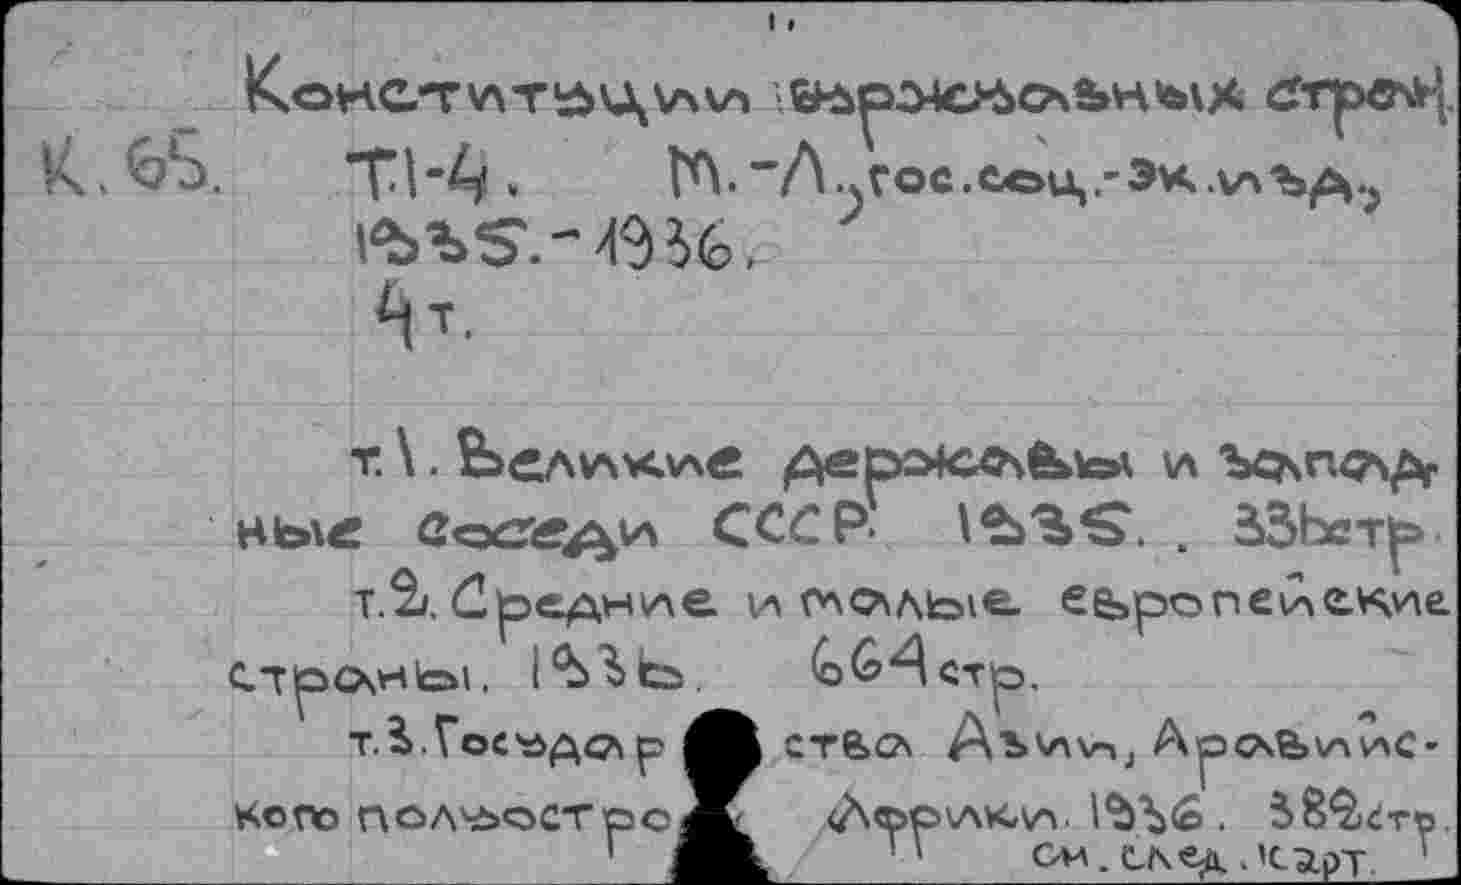 Конституции буржуазных стран.
К.65. Т.1-4. М.-Л., гос.соц.-эк.изд.,
1935.-1936.
4 т.
т.1. Великие державы и запад-
ные соседи СССР. 1935. .
т.2. Средние и малые европейские
страны. 1936. 664 стр.
т.3. Государ ства Азии, Аравийс-
кого полуостро Африки. 1936. 582 стр.
см. след. карт.